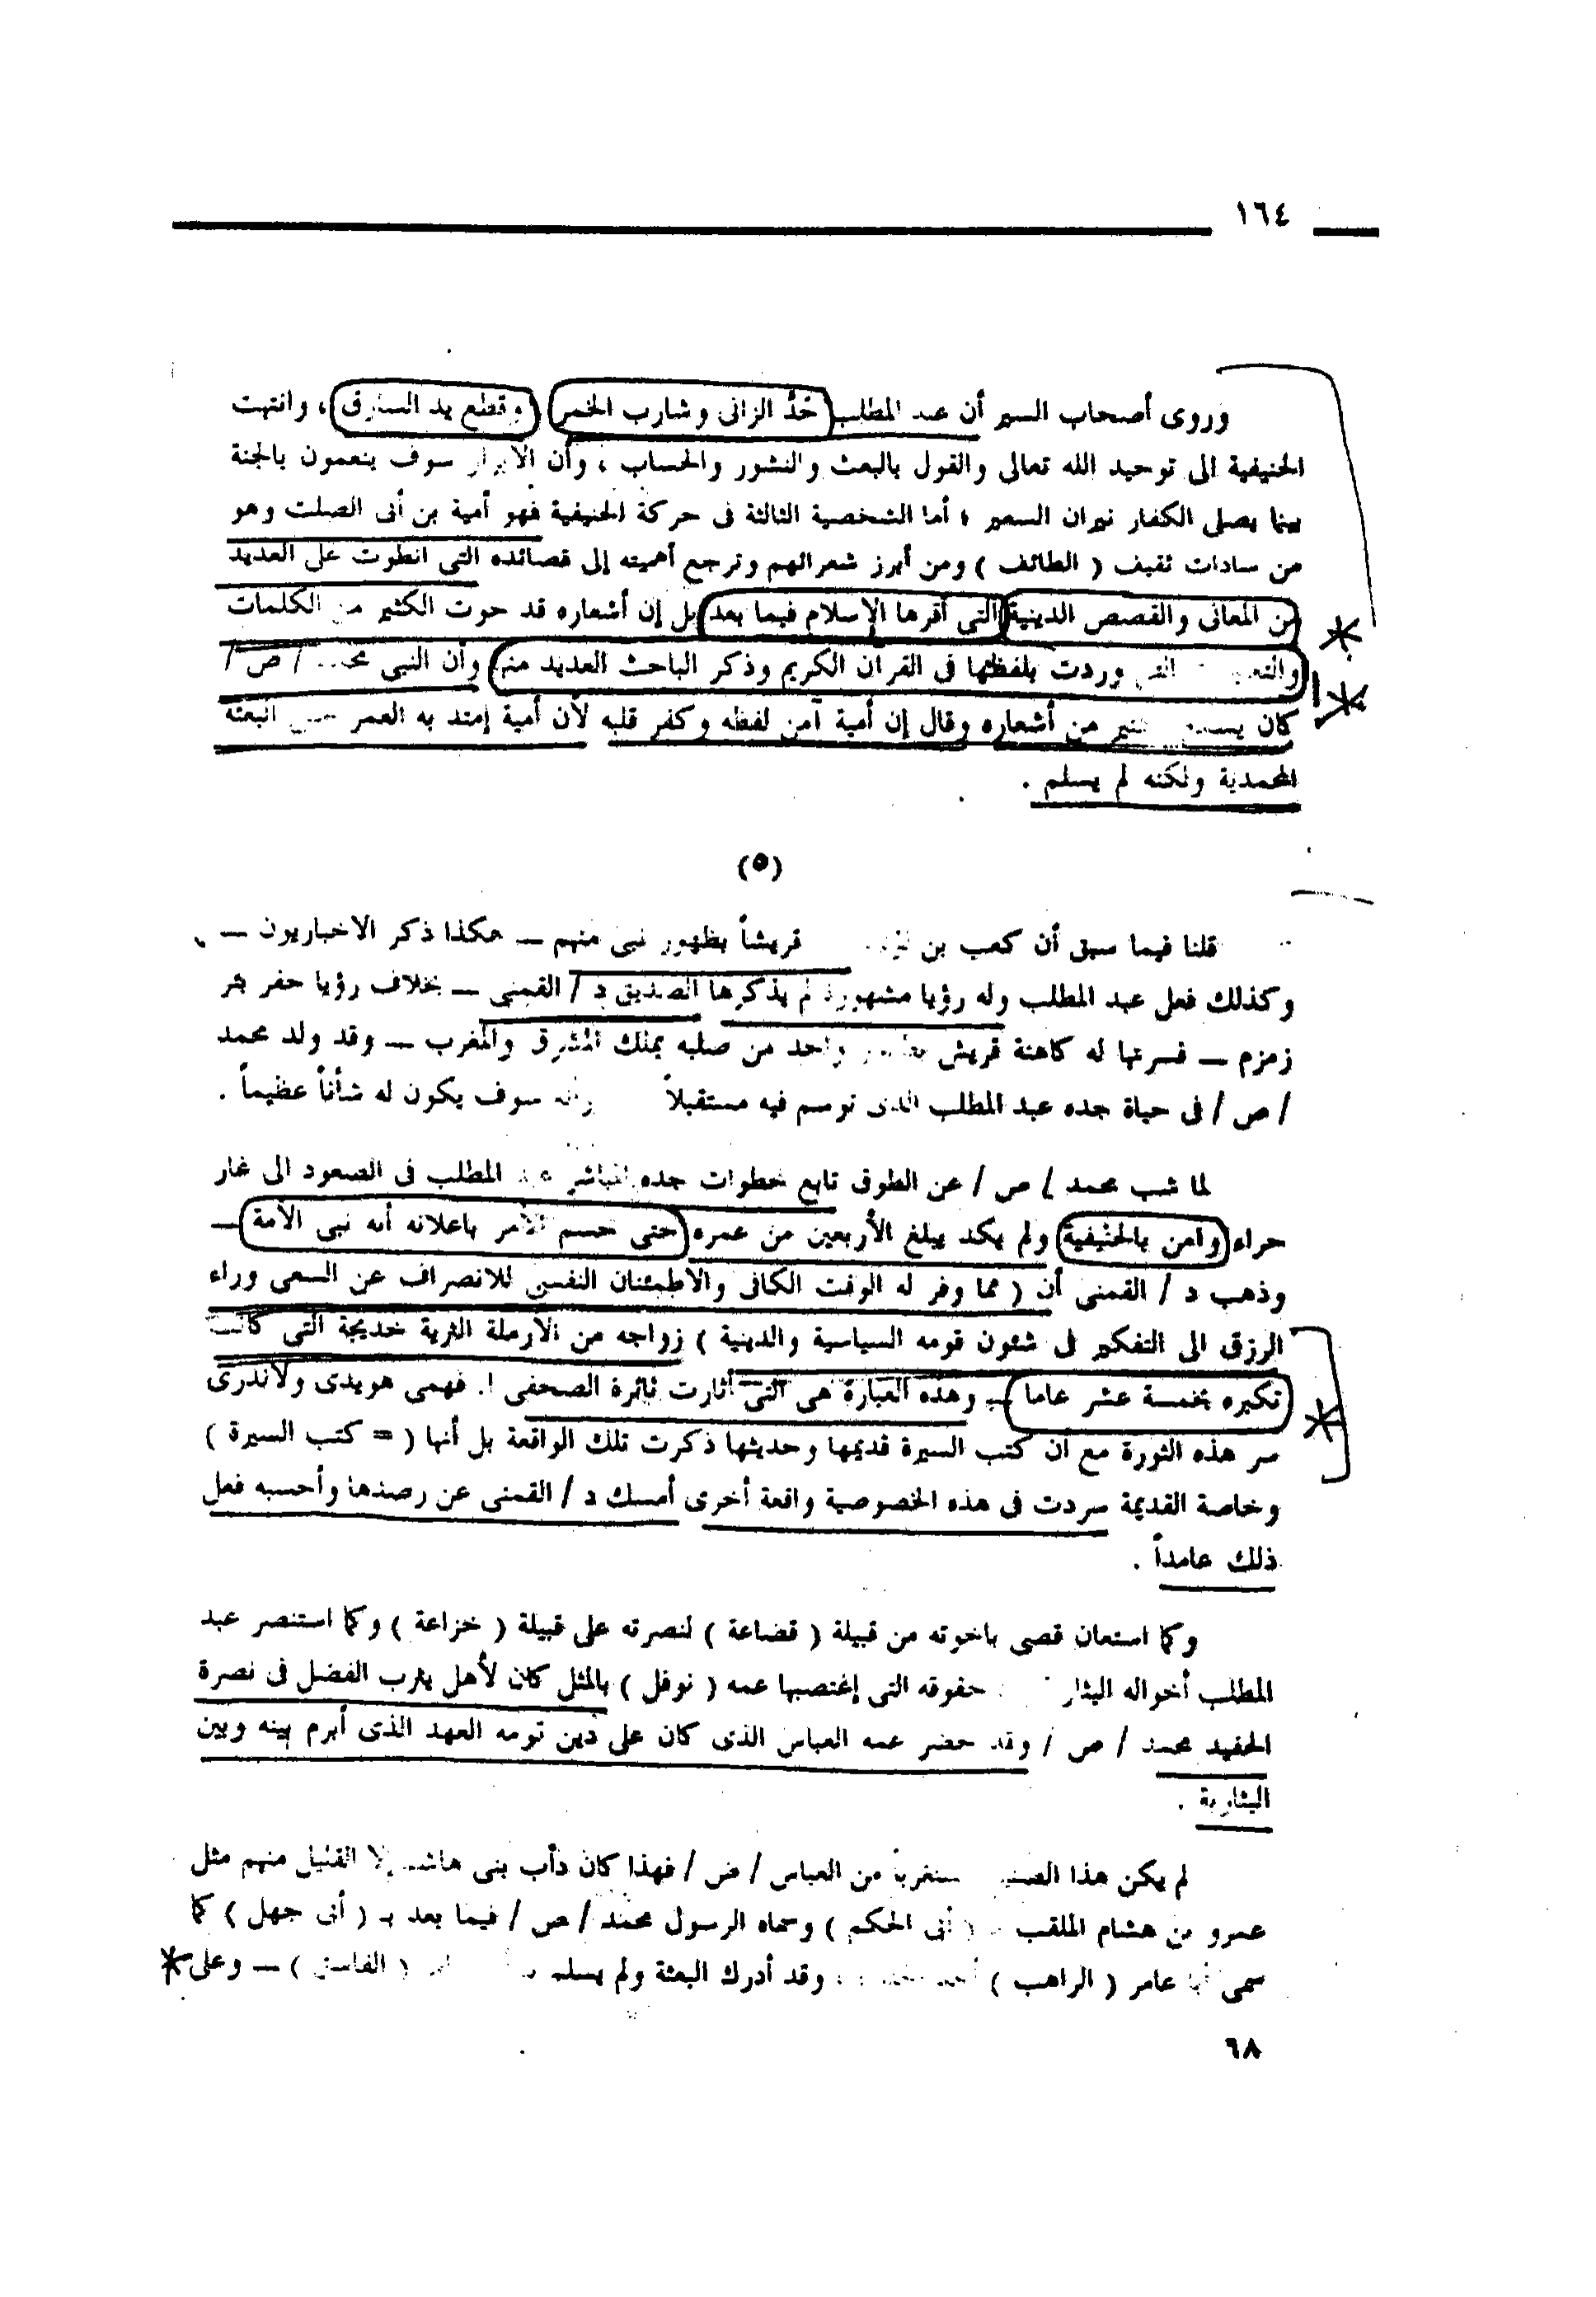 ١٦٤
وروى أصحاب السير أن عبد المطلب حَدَّ الزانى وشارب الخمر وقطع يد السارق ، وانتهت
الحنيفية الى توحيد الله تعالى والقول بالبعث والنشور والحساب ، وأن الأبرار سوف ينعمون بالجنة
بينما يصلى الكفار نيران السعير ؛ أما الشخصية الثالثة فى حركة الحنيفية فهو أمية بن أبى الصلت وهو
من سادات ثقيف ( الطائف ) ومن أبرز شعرائهم وترجع أهميته إلى قصائده التى انطوت على العديد
من المعانى والقصص الدينية التى أقرها الإسلام فيما بعد بل إن أشعاره قد حوت الكثير من الكلمات
التى وردت بلفظها فى القرآن الكريم وذكر الباحث العديد منها وأن النبى محمد / ص /
كان من أشعاره وقال إن أمية آمن لفظه وكفر قلبه لأن أمية إمتد به العمر حتى البعثة
المحمدية ولكنه لم يسلم .
(٥)
قلنا فيما سبق أن كعب بن قريشاً بظهور نبى منهم ــ هكذا ذكر الاخباريون ــ
وكذلك فعل عبد المطلب وله رؤيا مشهورة لم يذكرها الصديق د / القمنى ــ بخلاف رؤيا حفر بئر
زمزم ــ فسرتها له كاهنة قريش واحد من صلبه يملك المشرق والمغرب ــ وقد ولد محمد
/ ص / فى حياة جده عبد المطلب الذى توسم فيه مستقبلاً وأنه سوف يكون له شأناً عظيماً .
لما شب محمد / ص / عن الطوق تابع خطوات جده المباشر عبد المطلب فى الصعود الى غار
حراء وآمن بالحنيفية ولم يكد يبلغ الأربعين من عمره حتى حسم الأمر باعلانه أنه نبى الأمة ــ
وذهب د / القمنى أن ( مما وفر له الوقت الكافى والاطمئنان النفسى للانصراف عن السعى وراء
الرزق الى التفكير فى شئون قومه السياسية والدينية ) زواجه من الأرملة الثرية خديجة التى كانت
تكبره بخمسة عشر عاما ــ وهذه العبارة هى التى أثارت ثائرة الصحفى ا. فهمى هويدى ولاندرى
سر هذه الثورة مع أن كتب السيرة قديمها وحديثها ذكرت تلك الواقعة بل أنها ( = كتب السيرة )
وخاصة القديمة سردت فى هذه الخصوصية واقعة أخرى أمسك د / القمنى عن رصدها وأحسبه فعل
ذلك عامداً .
وكما استعان قصى باخوته من قبيلة ( قضاعة ) لنصرته على قبيلة ( خزاعة ) وكما استنصر عبد
المطلب أخواله حقوقه التى إغتصبها عمه ( نوفل ) بالمثل كان لأهل يثرب الفضل فى نصرة
الحفيد محمد / ص / وقد حضر عمه العباس الذى كان على دين قومه العهد الذى أبرم بينه وبين
اليثاربة .
لم يكن هذا من العباس / ض / فهذا كان دأب بنى هاشم إلا القليل منهم مثل
عمرو بن هشام الملقب ( أبى الحكم ) وسماه الرسول محمد / ص / فيما بعد بـ ( أبى جهل ) كما
سمى أبا عامر ( الراهب ) وقد أدرك البعثة ولم يسلم ( الفاسق ) ــ وعلى
٦٨